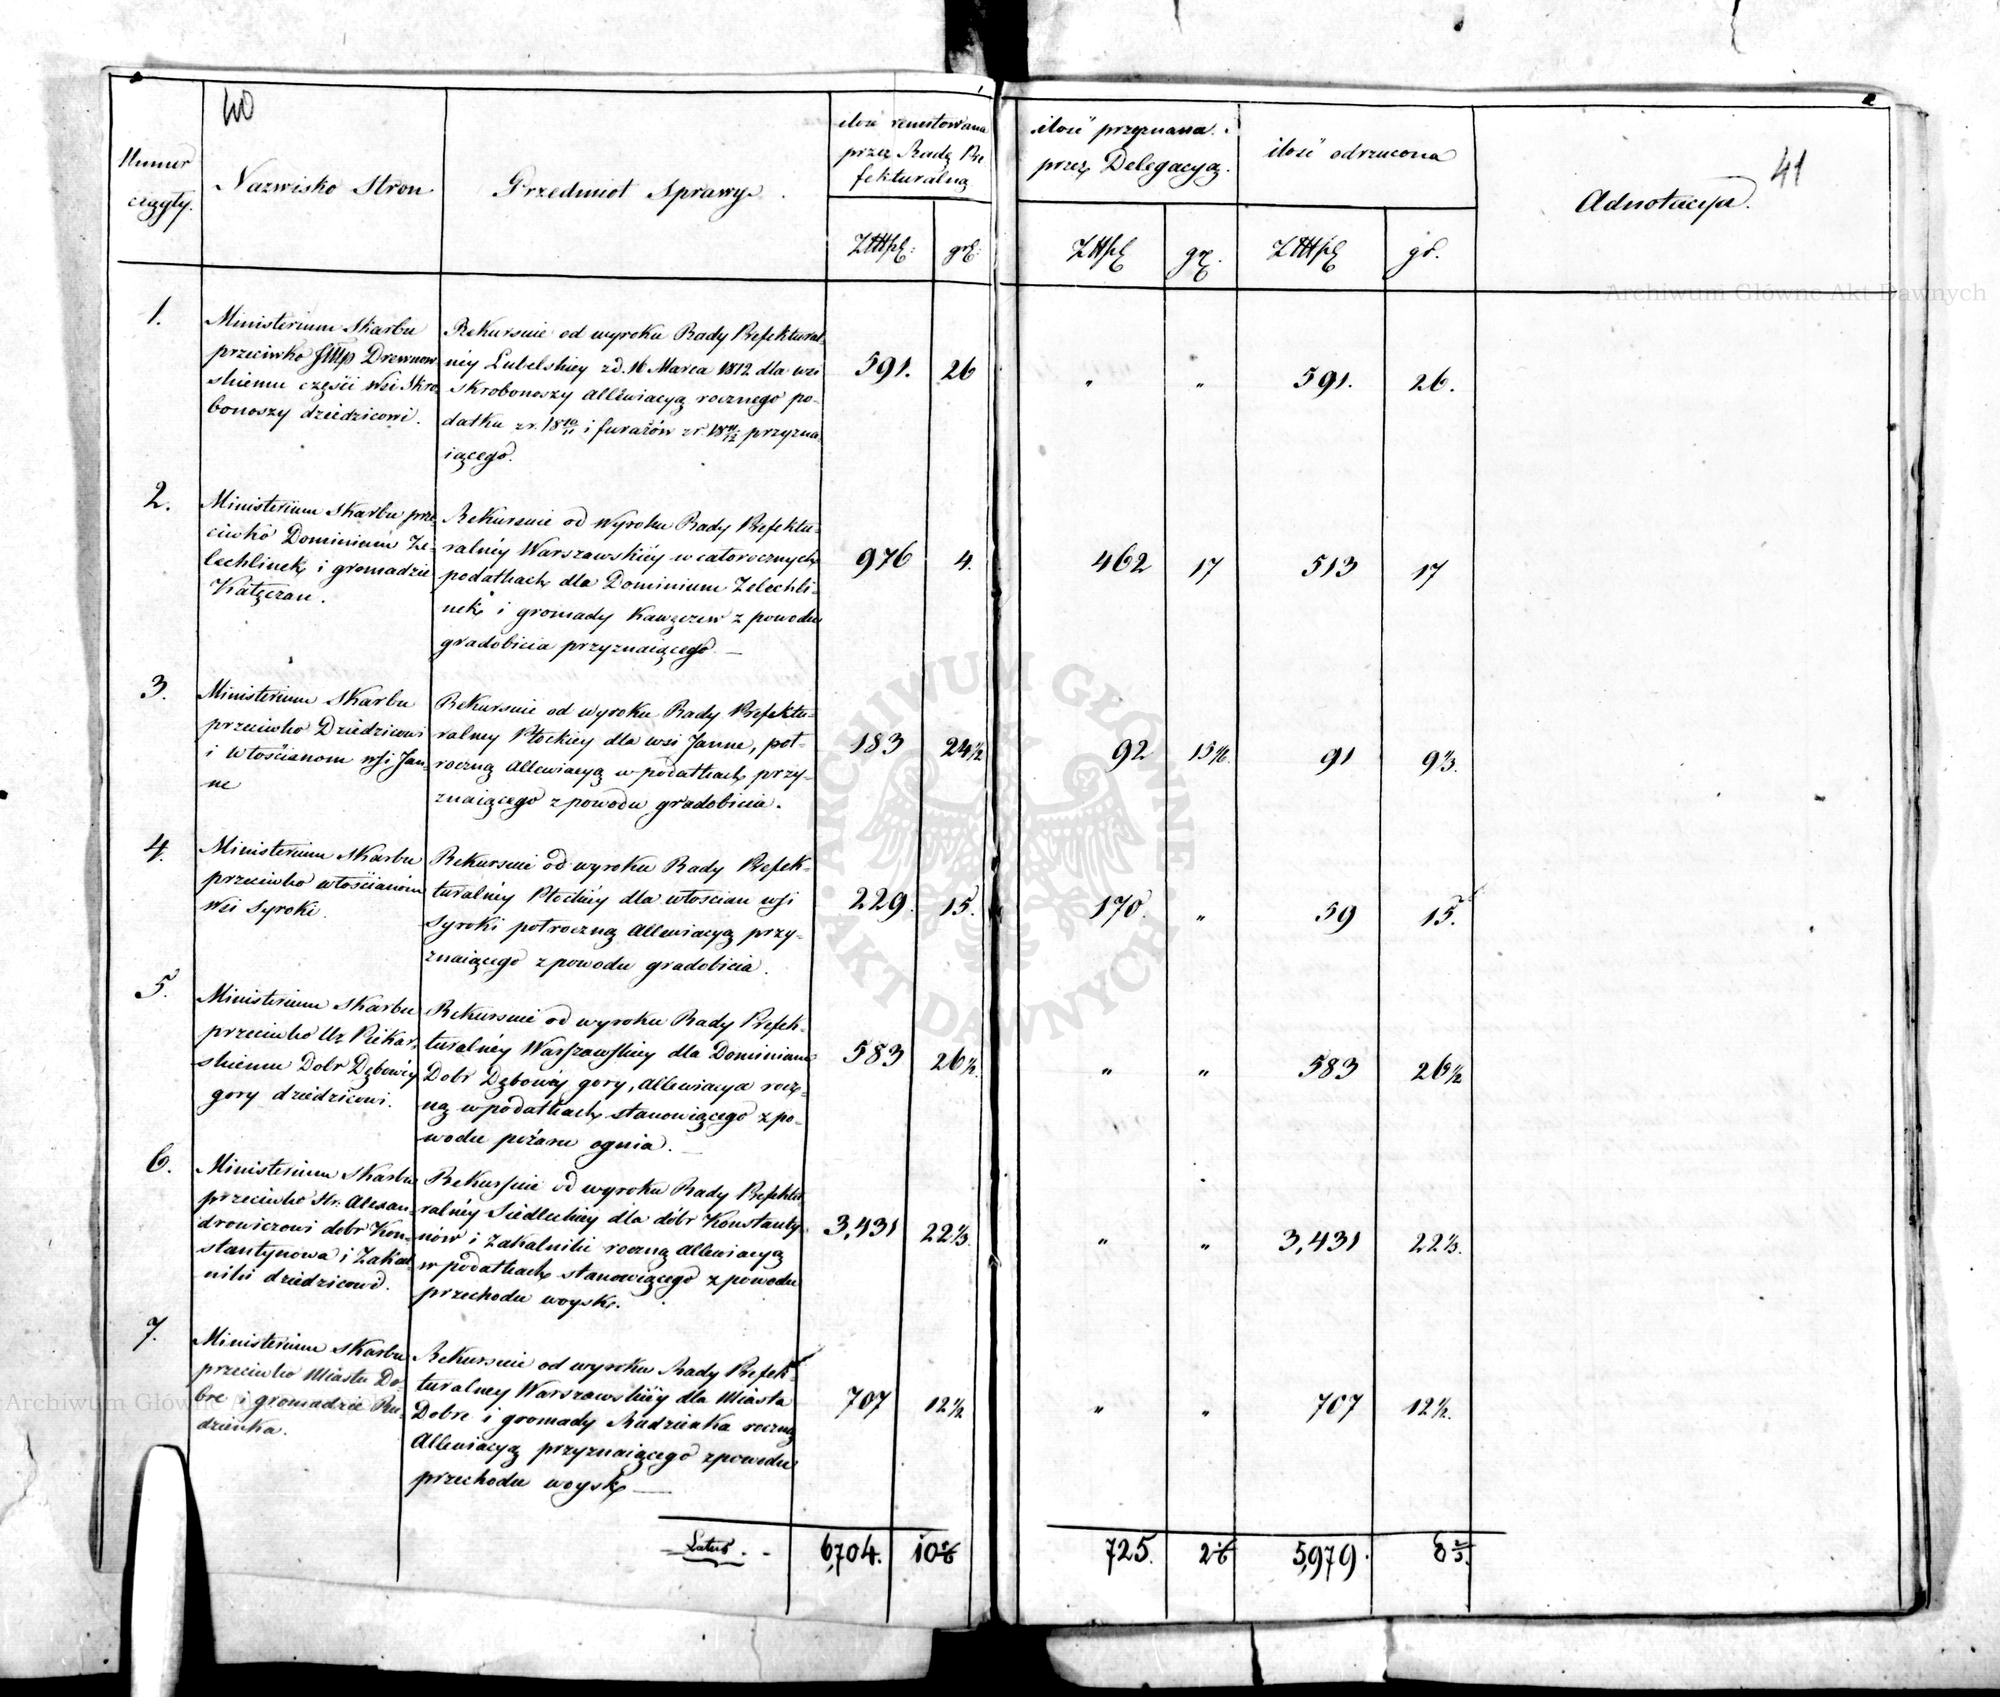 40
41
Numer
ciągły.
Nazwisko Stron
Przedmiot Sprawy.
ilość remitowana
przez Radę Pre
fekturalną
ilość przyznana
przez Delegacyą.
ilość odrzucona
Adnotacya.
gr:
gr.
gr.
1.
Ministerium Skarbu
przeciwko Drewnow
skiemu części Wsi Skro
bonoszy dziedzicowi.
Rekursuie od wyroku Rady Prefektural
néy Lubelskiey z d. 16 Marca 1812 dla wsi
Skrobonoszy Allewiacyą rocznego po-
datku z r. 18 10/11 i furażów z r. 18 11/12 przyzna
iącego.
591. 26 " " 591. 26.
2.
Ministerium Skarbu prze
ciwko Dominium Że-
lechlinek i gromadzie
Rekursuie od Wyroku Rady Prefektu-
ralnéy Warszawskiéy w całorocznych
podatkach dla Dominium Zelechli-
nek i gromady Kawęczew z powodu
gradobicia przyznaiącego —
976 4. 462 17 513 17
3.
Ministerium Skarbu
przeciwko Dziedzicowi
i Włościanom wsi Jan-
ne
Rekursuie od wyroku Rady Prefektu-
ralney Płockiey dla wsi Janne, pół-
roczną Allewiacyą w podatkach przy-
znaiącego z powodu gradobicia.
183 24 1/2 92 15 1/6 91 9 1/3.
4.
Ministerium Skarbu
przeciwko włościanóm
Wsi Syroki.
Rekursuie od wyroku Rady Prefek-
turalnéy Płockiéy dla włościan wsi
Syroki półroczną Allewiacyą przy-
znaiącego z powodu gradobicia.
229. 15. 170. " 59 15.
5.
Ministerium Skarbu
przeciwko Ur Piekar-
skiemu Dobr Dębowéy
gory dziedzicowi.
Rekursuie od wyroku Rady Prefek-
turalnéy Warszawskiey dla Dominium
Dobr Dębowéy gory, Allewiacya rocz-
ną w podatkach stanowiącego z po-
wodu pożaru ognia. —
583 26 1/2. " " 583 26 1/2
6.
Ministerium Skarbu
przeciwko Hr: Alexan-
drowiczowi dobr Kon-
stantynowa i Zakal-
niki dziedzicowi.
Rekursuie od wyroku Rady Prefektu
ralnéy Siedleckiey dla dóbr Konstanty-
nów i Zakalniki roczną Allewiacyą
w podatkach stanowiącego z powodu
przechodu woysk.
3,431 22 1/3. " " 3,431 22 1/3.
7.
Ministerium Skarbu
przeciwko Miastu Do-
bre i gromadzie Ru-
dzienka.
Rekursuie od wyroku Rady Prefek-
turalney Warszawskiéy dla Miasta
Dobre i gromady Rudzienka roczną
Allewiacyą przyznaiącego z powodu
przechodu woysk —
707 12 1/2 " " 707 12 1/2.
Latus. 6,704. 10 5/6 725. 2 1/6 5,979. 8 2/3.
Archiwum Główne Akt Dawnych
ARCHIWUM GŁÓWNE AKT DAWNYCH